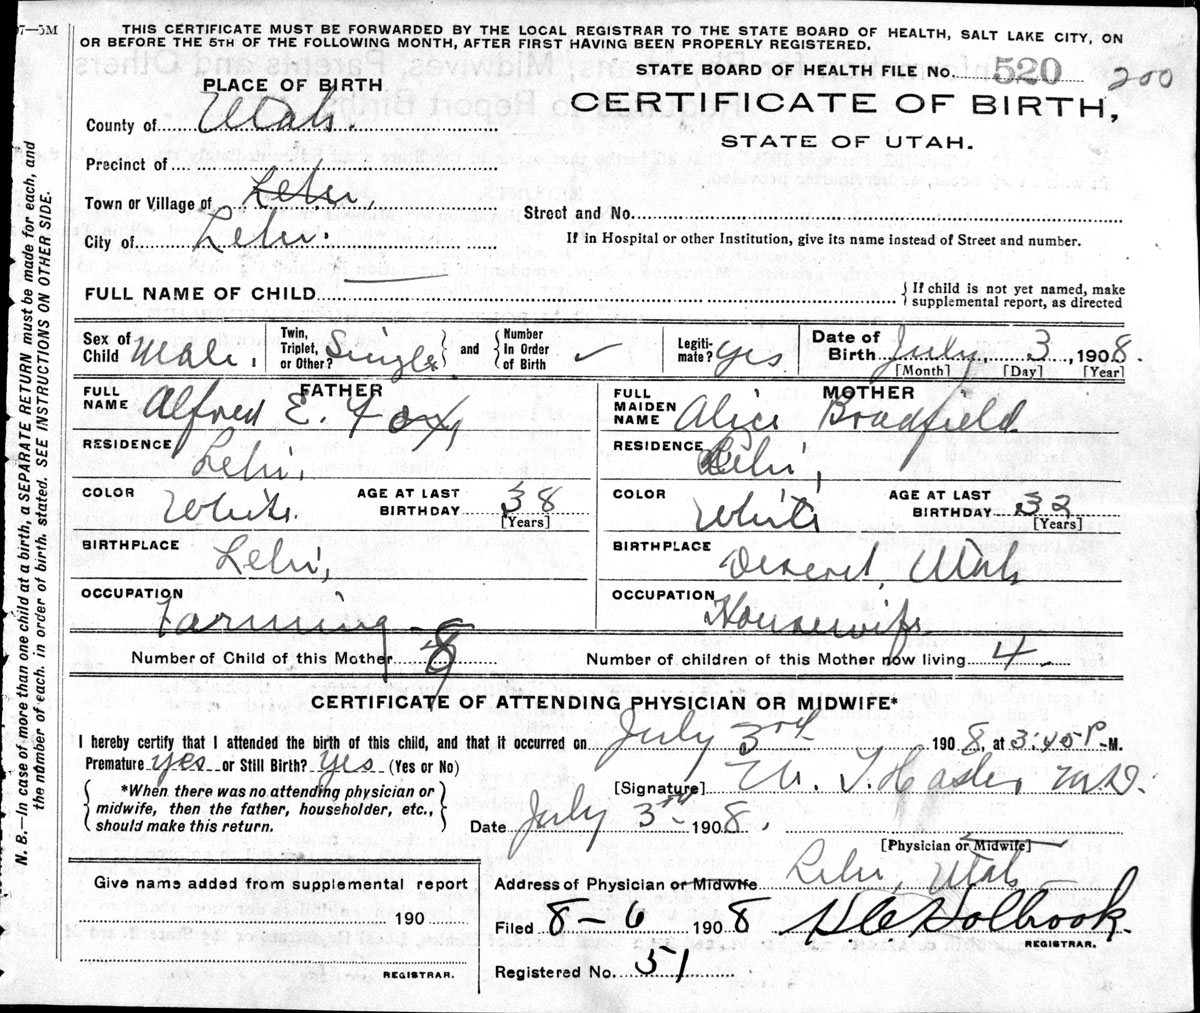 07—5M
THIS CERTIFICATE MUST BE FORWARDED BY THE LOCAL REGISTRAR TO THE STATE BOARD OF HEALTH, SALT LAKE CITY, ON
OR BEFORE THE 5TH OF THE FOLLOWING MONTH, AFTER FIRST HAVING BEEN PROPERLY REGISTERED.
STATE BOARD OF HEALTH FILE No. 520 200
PLACE OF BIRTH
CERTIFICATE OF BIRTH,
STATE OF UTAH.
County of Utah.
Precinct of
Town or Village of Lehi,
Street and No.
City of Lehi.
If in Hospital or other Institution, give its name instead of Street and number.
FULL NAME OF CHILD
If child is not yet named, make
supplemental report, as directed
Sex of Child Male. Twin, Triplet, or Other? Single and Number In Order of Birth ✓ Legiti- mate? yes Date of Birth July 3, 1908.
[Month] [Day] [Year]
FATHER
FULL NAME Alfred E. Fox,
RESIDENCE Lehi,
COLOR White. AGE AT LAST BIRTHDAY 38
[Years]
BIRTHPLACE Lehi,
OCCUPATION Farming
MOTHER
FULL MAIDEN NAME Alice Bradfield
RESIDENCE Lehi,
COLOR White AGE AT LAST BIRTHDAY 32
[Years]
BIRTHPLACE Deseret, Utah
OCCUPATION Housewife.
Number of Child of this Mother 8 Number of children of this Mother now living 4
CERTIFICATE OF ATTENDING PHYSICIAN OR MIDWIFE*
I hereby certify that I attended the birth of this child, and that it occurred on July 3rd 1908, at 3:45 P-M.
Premature yes or Still Birth? yes (Yes or No)
[Signature] M.D.
*When there was no attending physician or
midwife, then the father, householder, etc.,
should make this return.
Date July 3rd 1908.
[Physician or Midwife]
Address of Physician or Midwife Lehi, Utah
Give name added from supplemental report
190
REGISTRAR.
Filed 8-6 1908 Holbrook.
REGISTRAR.
Registered No. 51
N. B.—In case of more than one child at a birth, a SEPARATE RETURN must be made for each, and
the number of each, in order of birth, stated. SEE INSTRUCTIONS ON OTHER SIDE.